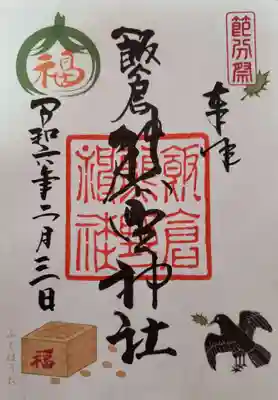 節分祭
奉拝
飯倉熊野神社
飯倉
熊野
神社
福
令和六年二月三日
福